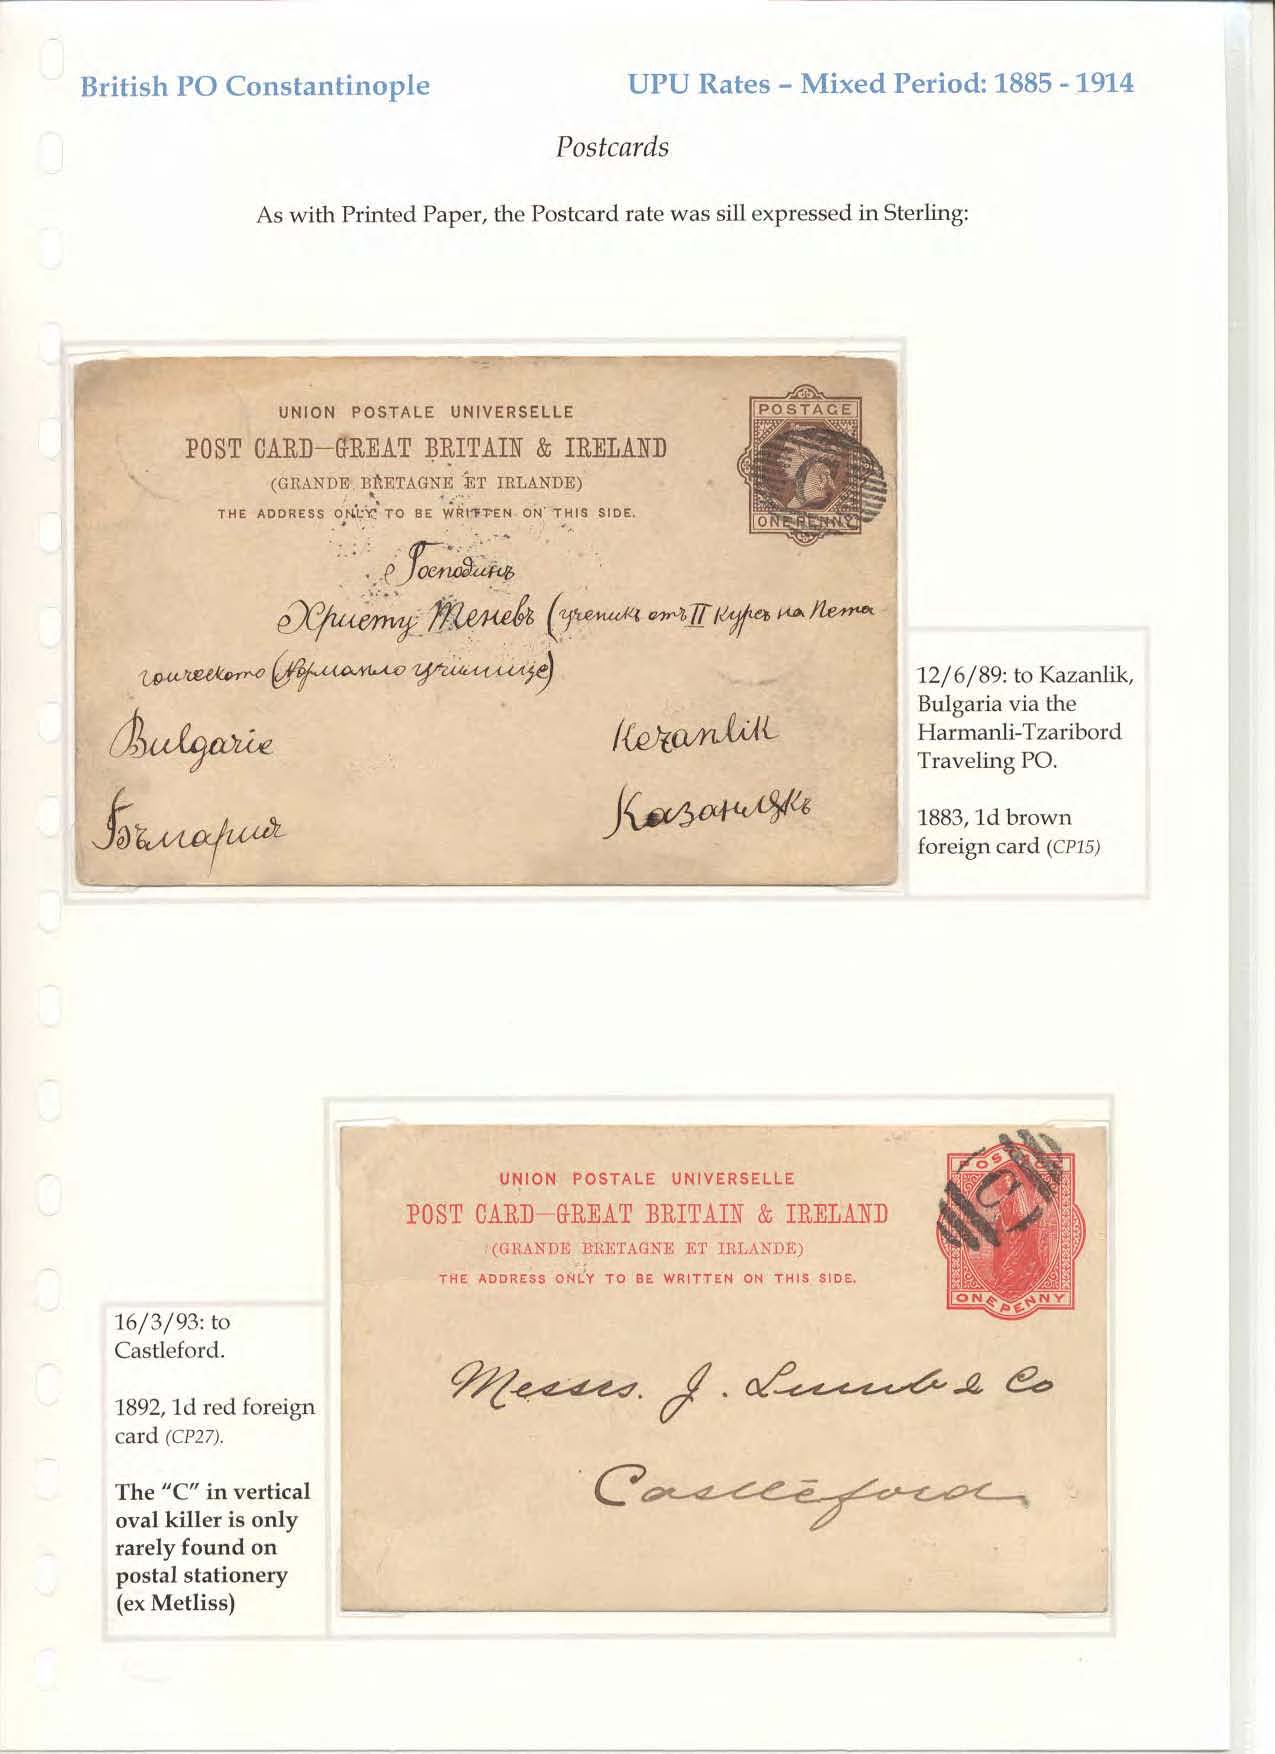 British PO Constantinople
UPU Rates – Mixed Period: 1885 - 1914
Postcards
As with Printed Paper, the Postcard rate was sill expressed in Sterling:
UNION POSTALE UNIVERSELLE
POST CARD—GREAT BRITAIN & IRELAND
(GRANDE BRETAGNE ET IRLANDE)
THE ADDRESS ONLY TO BE WRITTEN ON THIS SIDE.
POSTAGE
C
ONE PENNY
Господинъ
Христу Теневъ (ученикъ отъ II Курсъ на Пета
гогическото (Нормално училище)
Bulgarie Kezanlik
България Казанлѫкъ
12/6/89: to Kazanlik,
Bulgaria via the
Harmanli-Tzaribord
Traveling PO.
1883, 1d brown
foreign card (CP15)
UNION POSTALE UNIVERSELLE
POST CARD—GREAT BRITAIN & IRELAND
(GRANDE BRETAGNE ET IRLANDE)
THE ADDRESS ONLY TO BE WRITTEN ON THIS SIDE.
C
ONE PENNY
Messrs. J. Lumb & Co
Castleford
16/3/93: to
Castleford.
1892, 1d red foreign
card (CP27).
The "C" in vertical
oval killer is only
rarely found on
postal stationery
(ex Metliss)